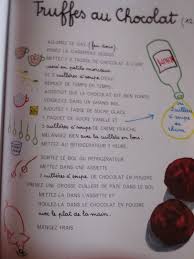 Truffes au Chocolat
ALLUMEZ LE GAZ (feu doux)
POSEZ LA CASSEROLE DESSUS
METTEZ 2 TASSES DE CHOCOLAT À CUIRE
cassé en petits morceaux
ET 2 cuillères à soupe d'eau
REMUEZ DE TEMPS EN TEMPS
JUSQU'À CE QUE LE CHOCOLAT SOIT BIEN FONDU
VERSEZ DANS UN GRAND BOL
AJOUTEZ 1 TASSE DE SUCRE GLACE
1 PAQUET DE SUCRE VANILLÉ ET
2 cuillères à soupe DE CRÈME FRAÎCHE
MÉLANGEZ BIEN avec la cuillère en bois
METTEZ AU RÉFRIGÉRATEUR 1 HEURE
SORTEZ LE BOL DU RÉFRIGÉRATEUR
METTEZ DANS UNE ASSIETTE
2 cuillères à soupe DE CHOCOLAT EN POUDRE
PRENEZ UNE GROSSE CUILLÈRE DE PÂTE DANS LE BOL
METTEZ-LA DANS L'ASSIETTE ET
ROULEZ-LA DANS LE CHOCOLAT EN POUDRE
avec le plat de la main.
MANGEZ FRAIS
ou 2 cuillères
à soupe
de